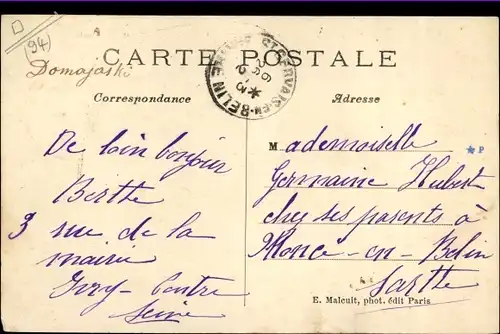 (94)
Domajaski
CARTE POSTALE
Correspondance
Adresse
De loin bonjour
Berthe
3 rue de la
mairie
Ivry-Centre
Seine
Mademoiselle
Germaine Hubert
chez ses parents à
Monce-en-Belin
Sarthe
P
E. Malcuit, phot. édit Paris
ST GERVAIS-EN-BELIN